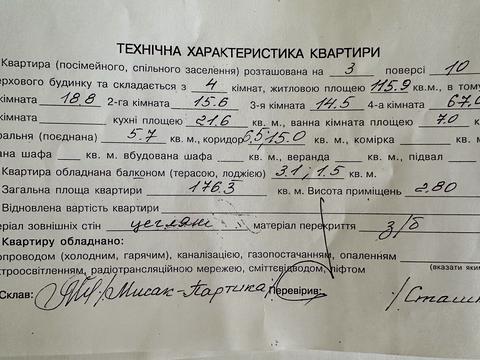 ТЕХНІЧНА ХАРАКТЕРИСТИКА КВАРТИРИ
Квартира (посімейного, спільного заселення) розташована на 3 поверсі 10
ерхового будинку та складається з 4 кімнат, житловою площею 115.9 кв.м., в тому
кімната 18.8 2-га кімната 15.6 3-я кімната 14.5 4-а кімната 67.0
кімната кухні площею 21.6 кв. м., ванна кімната площею 7.0 к
ральня (поєднана) 5.7 кв. м., коридор 6,5; 15.0 кв. м., комірка кв. м.,
ана шафа кв. м. вбудована шафа кв. м., веранда кв. м., підвал
Квартира обладнана балконом (терасою, лоджією) 3.1; 1.5 кв. м.
Загальна площа квартири 176.3 кв. м. Висота приміщень 2.80
Відновлена вартість квартири
еріал зовнішніх стін цегляні матеріал перекриття з/б
Квартиру обладнано:
опроводом (холодним, гарячим), каналізацією, газопостачанням, опаленням
ектроосвітленням, радіотрансляційною мережею, сміттєвідводом, ліфтом (вказати яким
Склав: /Мисак-Партика/ Перевірив: /Сташк